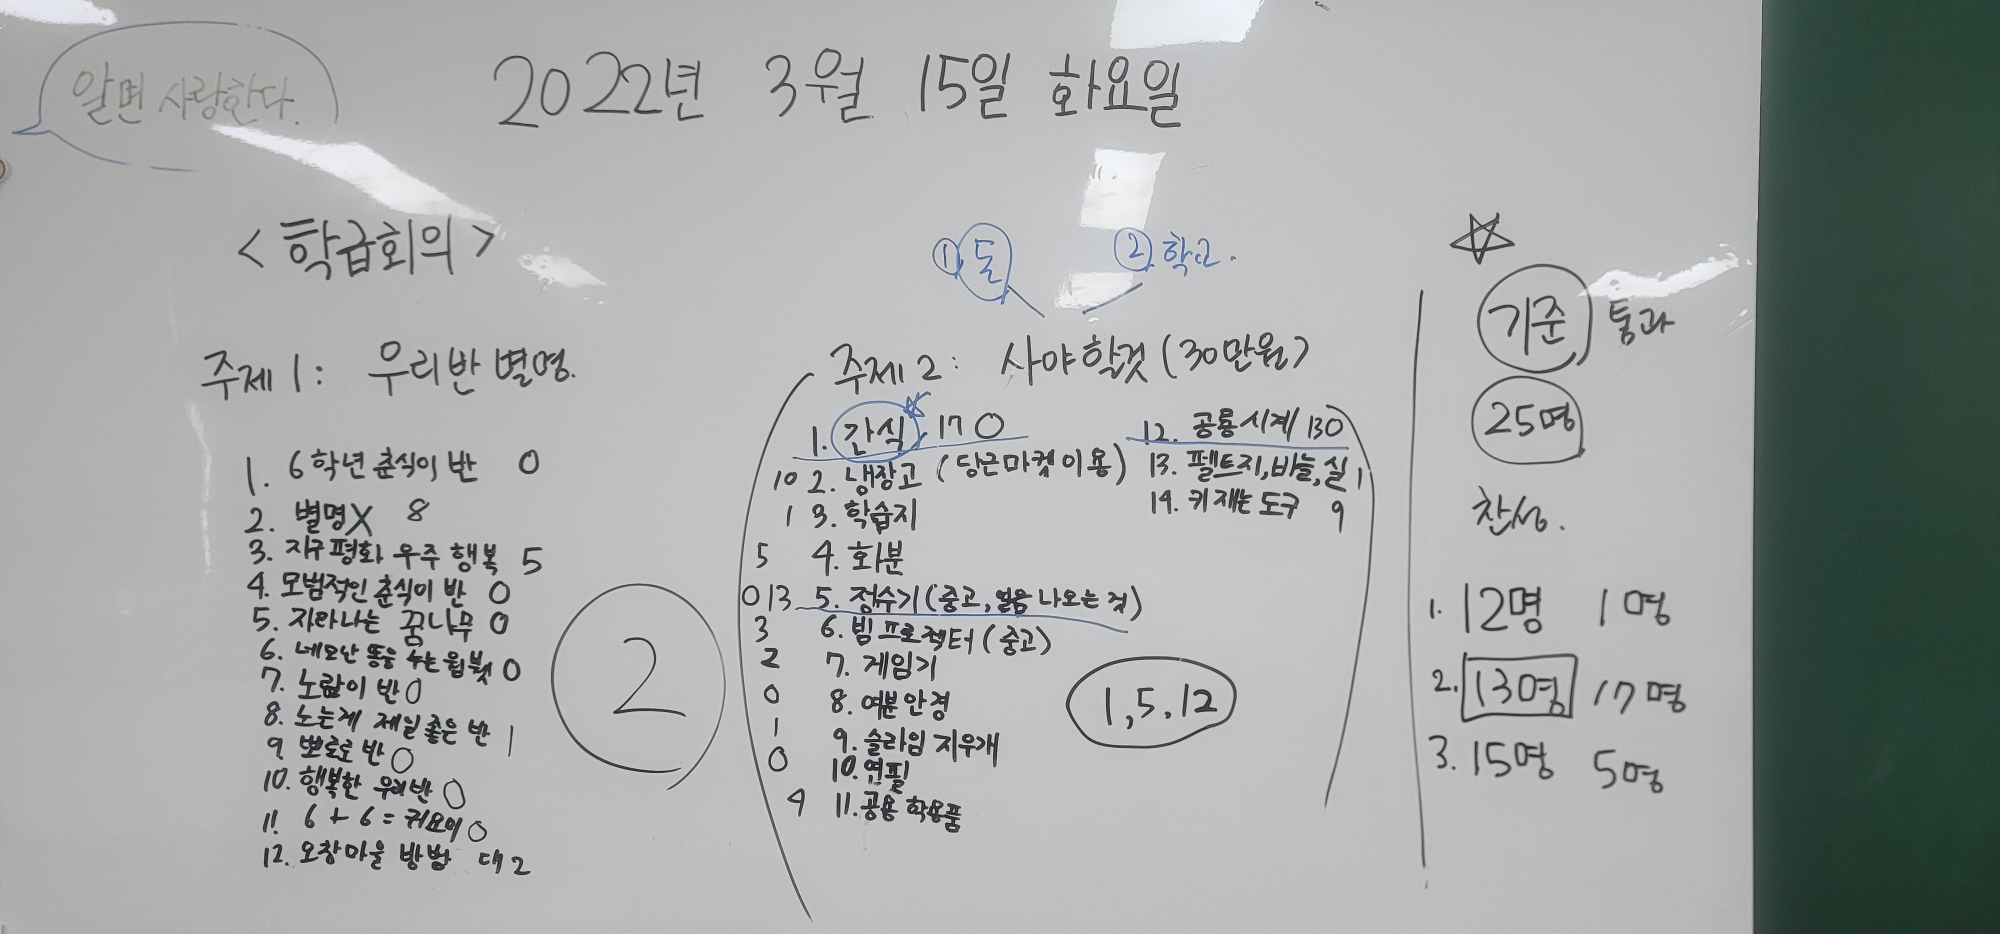 알면 사랑한다.
2022년 3월 15일 화요일
<학급회의>
주제 1: 우리반 별명.
1. 6학년 춘식이 반 0
2. 별명X 8
3. 지구평화 우주 행복 5
4. 모범적인 춘식이 반 0
5. 자라나는 꿈나무 0
6. 네모난 똥을 누는 웜뱃 0
7. 노람이 반 0
8. 노는게 제일 좋은 반 1
9. 뽀로로 반 0
10. 행복한 우리반 0
11. 6+6=귀요미 0
12. 오창마을 방범대 2
2
① 돈 ② 학교.
주제 2: 사야할것 (30만원)
1. 간식 17 O
10 2. 냉장고 (당근마켓 이용)
1 3. 학습지
5 4. 화분
O 13 5. 정수기 (중고, 얼음 나오는 것)
3 6. 빔 프로젝터 (중고)
2 7. 게임기
0 8. 여분 안경
1 9. 슬라임 지우개
0 10. 연필
4 11. 공용 학용품
12. 공룡시계 13 O
13. 펠트지, 바늘, 실 1
14. 키 재는 도구 9
1, 5, 12
기준 통과
25명
찬성.
1. 12명 1명
2. 13명 17명
3. 15명 5명